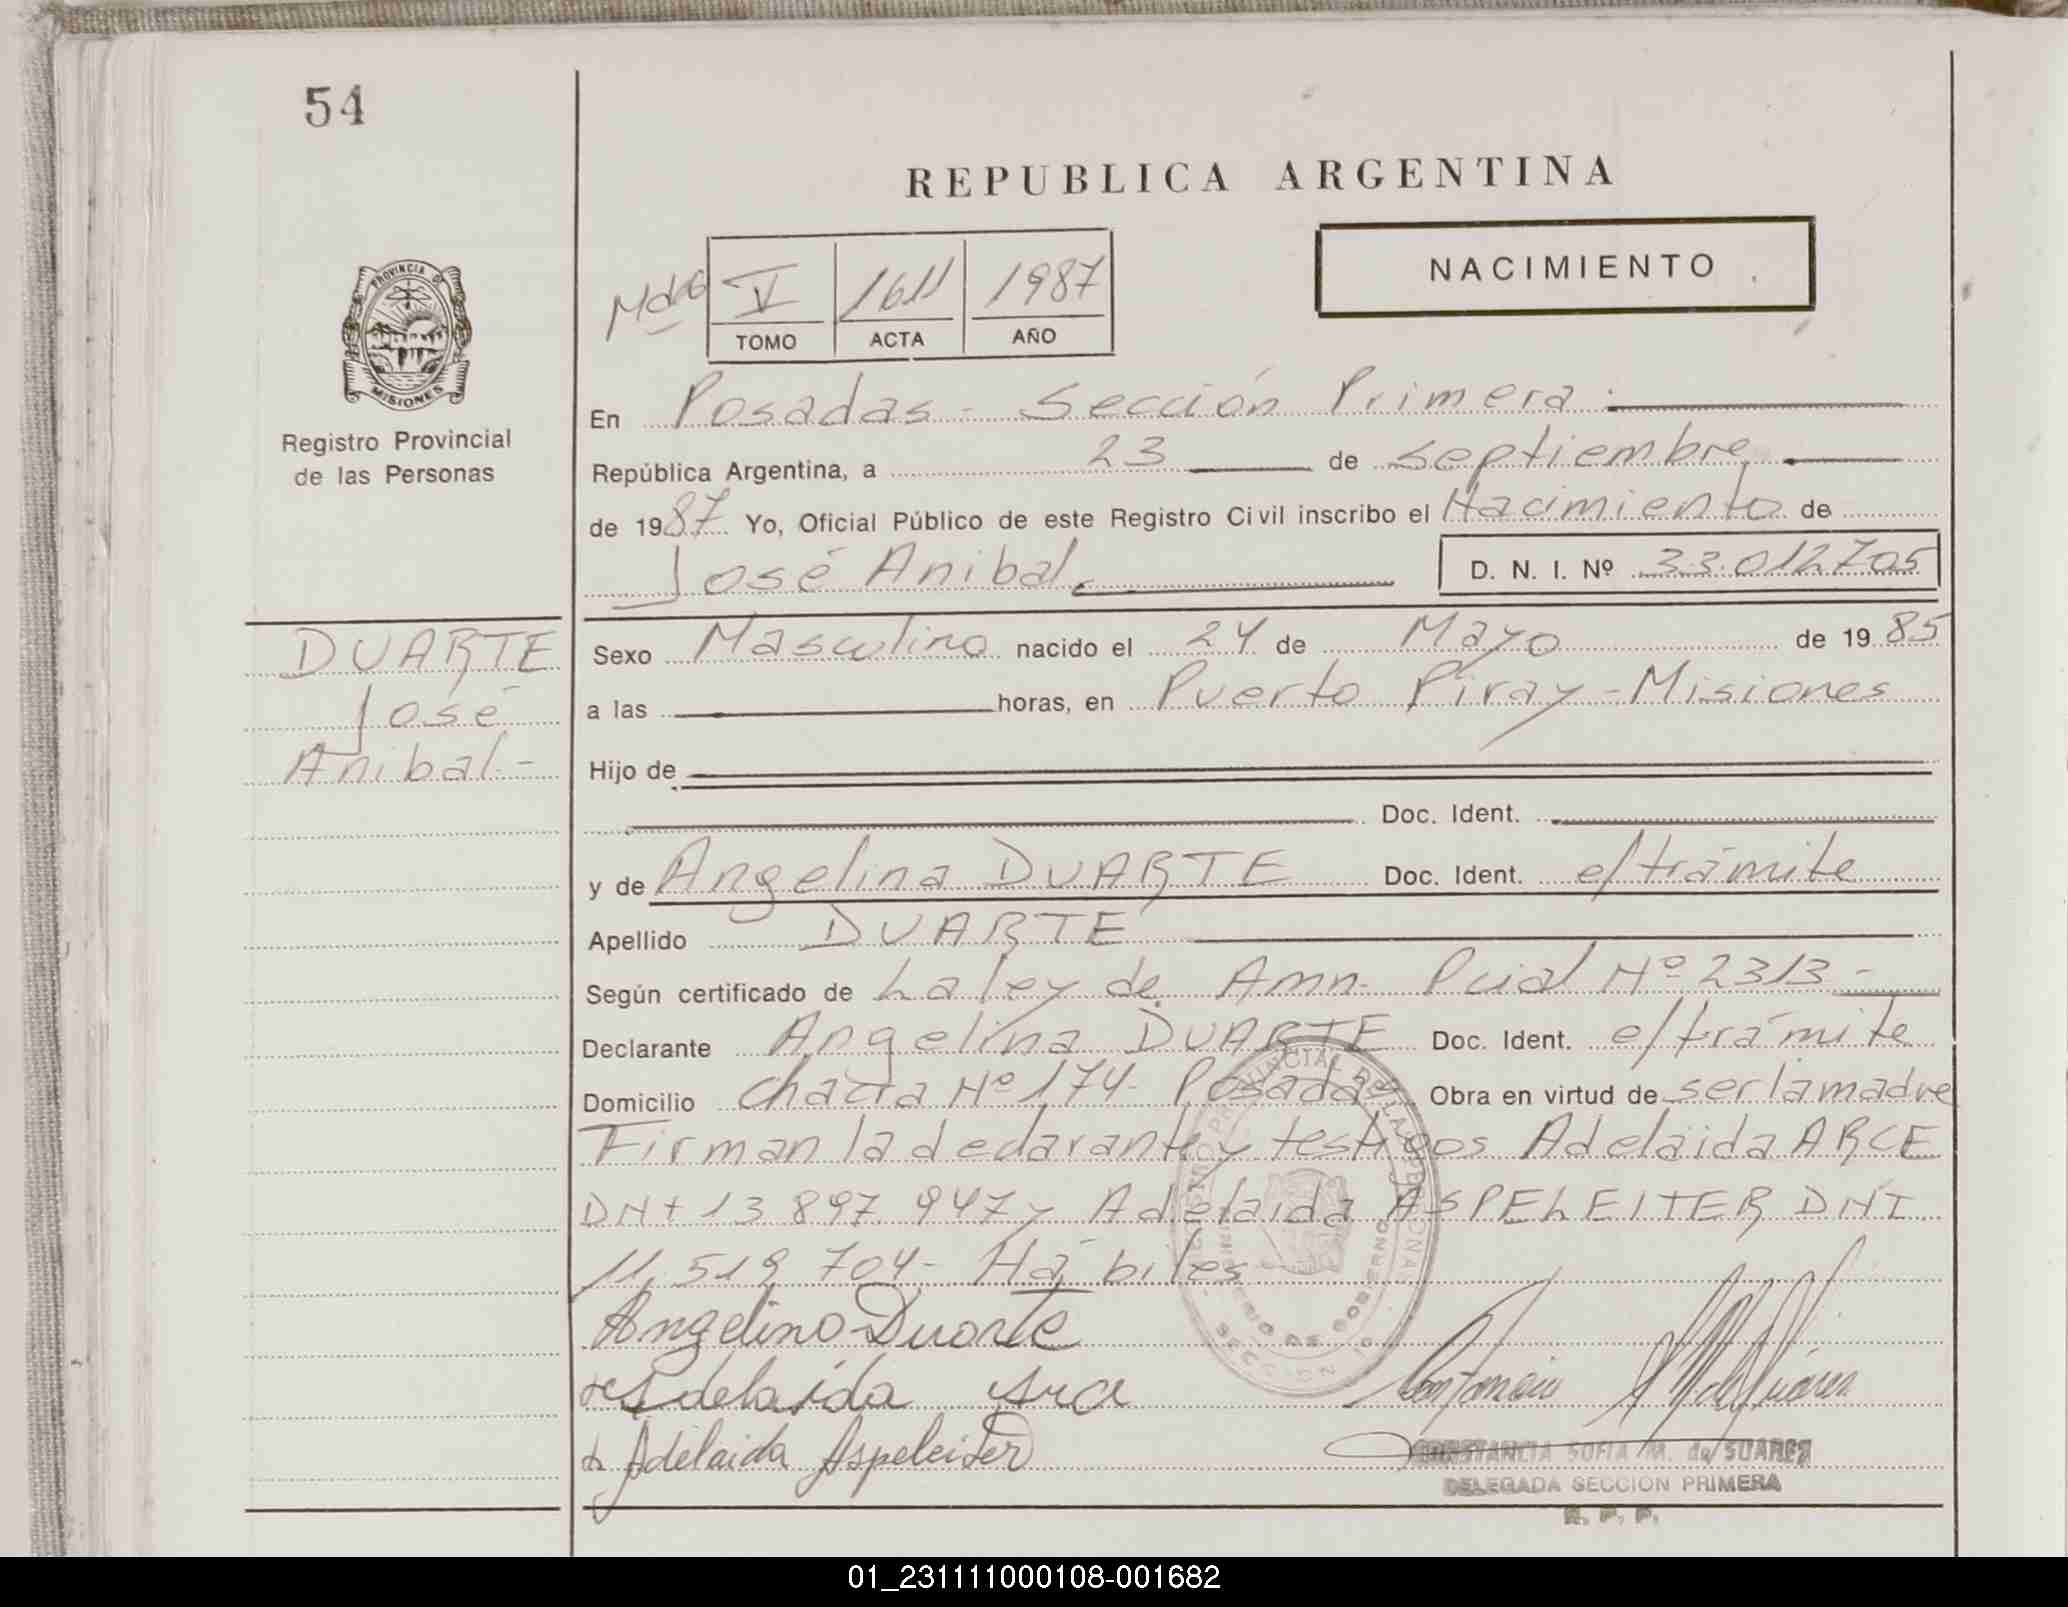 54
REPUBLICA ARGENTINA
NACIMIENTO
V 1611 1987
TOMO ACTA AÑO
PROVINCIA DE
MISIONES
Registro Provincial
de las Personas
En Posadas - Sección Primera
República Argentina, a 23 de septiembre
de 1987 Yo, Oficial Público de este Registro Civil inscribo el Nacimiento de
José Anibal D. N. I. Nº 33.012705
DUARTE
José
Anibal -
Sexo Masculino nacido el 24 de Mayo de 1985
a las horas, en Puerto Piray - Misiones
Hijo de
Doc. Ident.
y de Angelina DUARTE Doc. Ident. e/trámite
Apellido DUARTE
Según certificado de La ley de Amn. Pcial Nº 2313 -
Declarante Angelina DUARTE Doc. Ident. e/trámite
Domicilio Chacra Nº 174 - Posadas Obra en virtud de ser la madre
Firman la declarante y testigos Adelaida ARCE
DNI 13 897 947 y Adelaida ASPELEITER DNI
11.519 704 - Hábiles
Angelina Duarte
Adelaida Arce
Adelaida Aspeleiter
CONSTANCIA SOFIA M. de SUAREZ
DELEGADA SECCION PRIMERA
R. P. P.
01_231111000108-001682